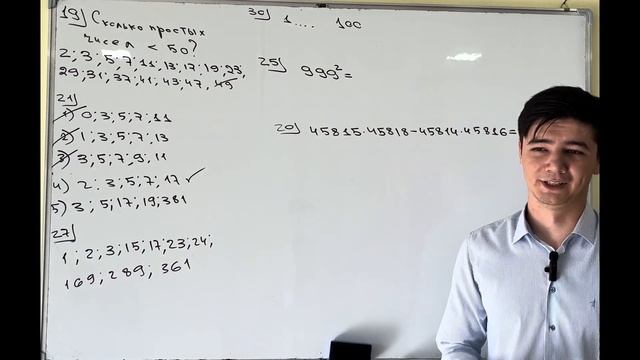 19) Сколько простых
чисел < 50?
2; 3; 5; 7; 11; 13; 17; 19; 23;
29; 31; 37; 41; 43; 47, 49
21)
1) 0; 3; 5; 7; 11
2) 1; 3; 5; 7; 13
3) 3; 5; 7; 9; 11
4) 2; 3; 5; 7; 17 ✓
5) 3; 5; 17; 19; 381
27)
1; 2; 3; 15; 17; 23; 24;
169; 289; 361
30) 1 .... 100
25) 999² =
20) 45815·45818-45814·45816=